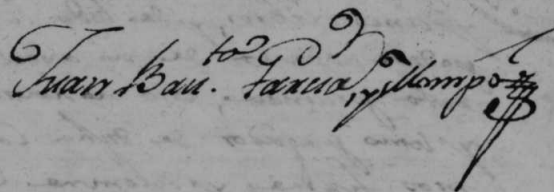 Juan Bau.ta Garcia, y Mompo